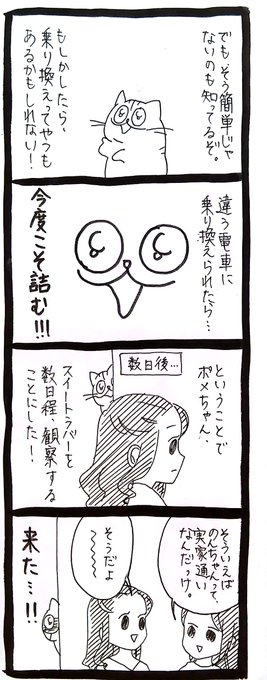 でも、そう簡単じゃ
ないのも知ってるぞ。
もしかしたら、
乗り換えってやつも
あるかもしれない!
違う電車に
乗り換えられたら…
今度こそ詰む!!!
数日後…
ということで
ポメちゃん、
スイートラバーを
数日程、観察する
ことにした!
そういえば
のんちゃんって、
実家通い
なんだっけ。
そうだよ
〜〜〜
来た…!!